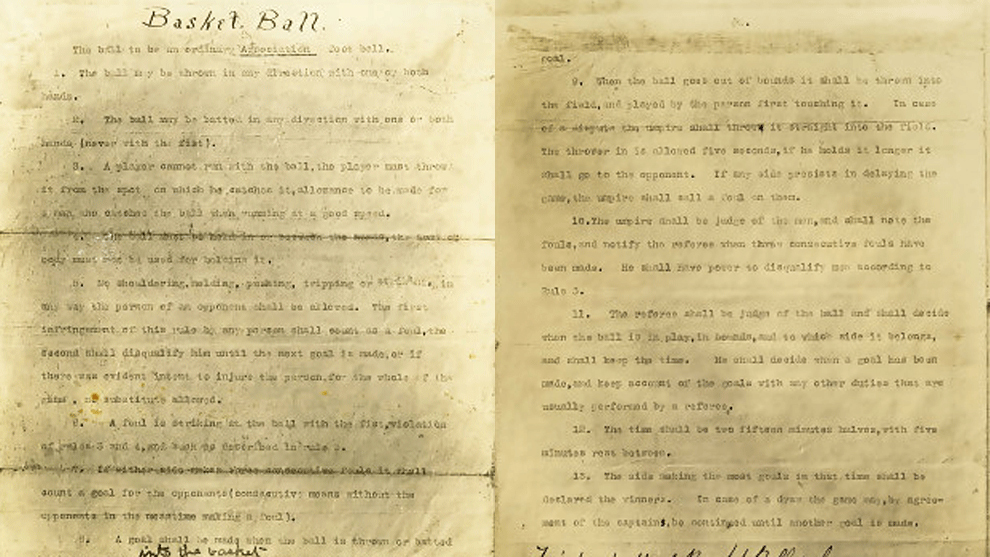 Basket Ball.
The ball to be an ordinary Association foot ball.
1. The ball may be thrown in any direction with one or both
hands.
2. The ball may be batted in any direction with one or both
hands (never with the fist).
3. A player cannot run with the ball, the player must throw
it from the spot on which he catches it, allowance to be made for
a man who catches the ball when running at a good speed.
4. The ball must be held in or between the hands, the arms or
body must not be used for holding it.
5. No shouldering, holding, pushing, tripping or striking, in
any way the person of an opponent shall be allowed. The first
infringement of this rule by any person shall count as a foul, the
second shall disqualify him until the next goal is made, or if
there was evident intent to injure the person, for the whole of the
game, no substitute allowed.
6. A foul is striking at the ball with the fist, violation
of rules 3 and 4, and such as described in rule 5.
7. If either side makes three consecutive fouls it shall
count a goal for the opponents (consecutive means without the
opponents in the meantime making a foul).
8. A goal shall be made when the ball is thrown or batted
into the basket
goal.
9. When the ball goes out of bounds it shall be thrown into
the field, and played by the person first touching it. In case
of a dispute the umpire shall throw it straight into the field.
The thrower in is allowed five seconds, if he holds it longer it
shall go to the opponent. If any side presists in delaying the
game, the umpire shall call a foul on them.
10. The umpire shall be judge of the men, and shall note the
fouls, and notify the referee when three consecutive fouls have
been made. He shall have power to disqualify men according to
Rule 5.
11. The referee shall be judge of the ball and shall decide
when the ball is in play, in bounds, and to which side it belongs,
and shall keep the time. He shall decide when a goal has been
made, and keep account of the goals with any other duties that are
usually performed by a referee.
12. The time shall be two fifteen minutes halves, with five
minutes rest between.
13. The side making the most goals in that time shall be
declared the winners. In case of a draw the game may, by agree-
ment of the captains, be continued until another goal is made.